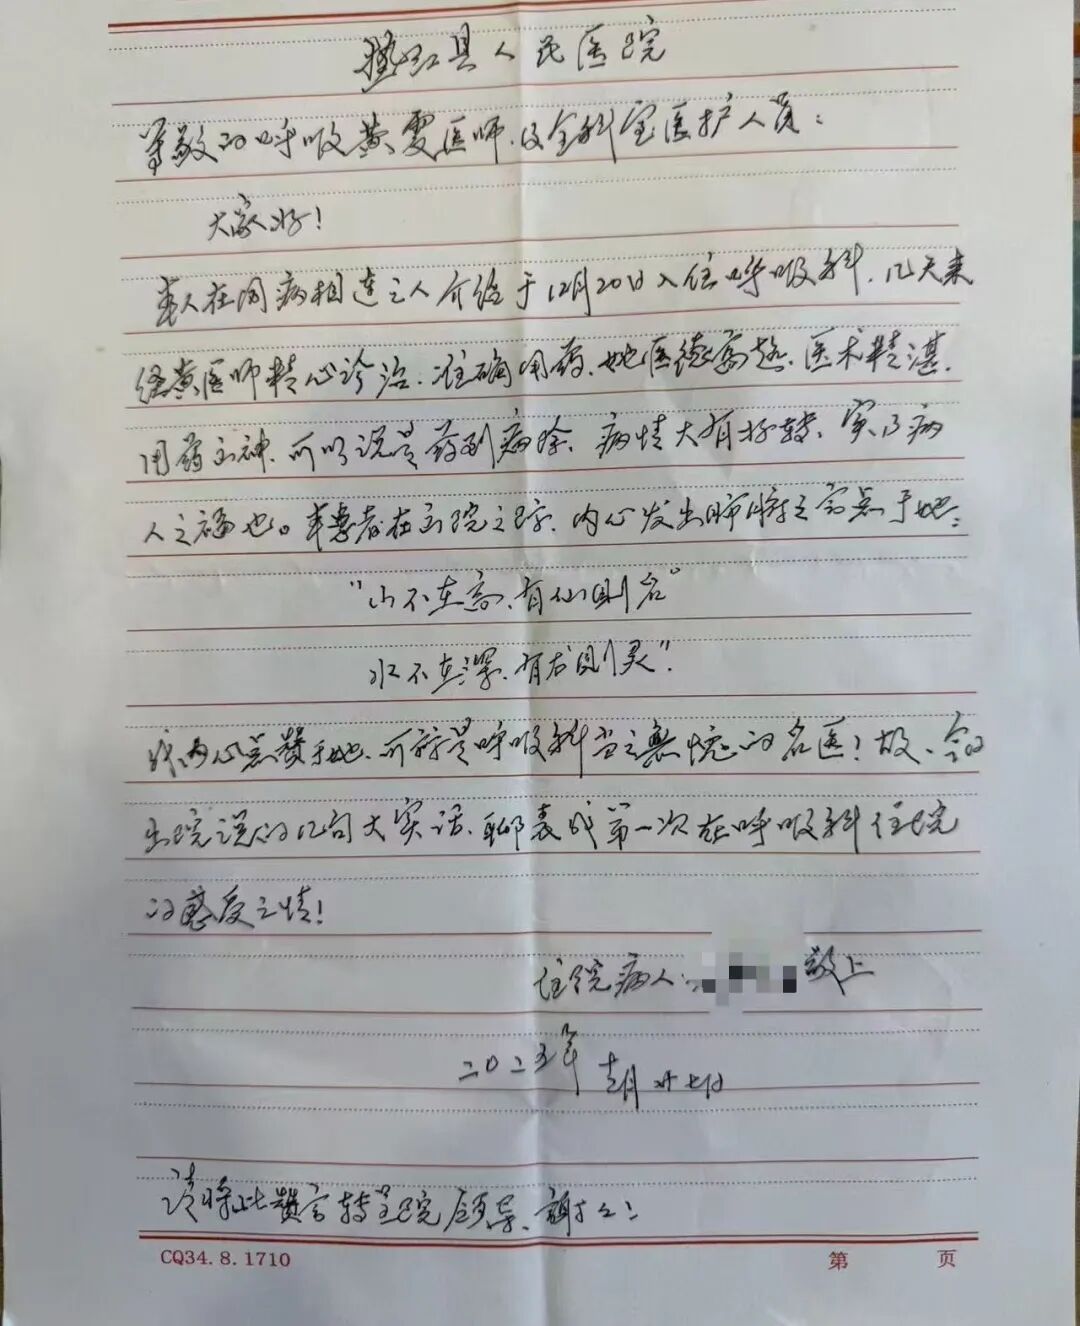 垫江县人民医院
尊敬的呼吸黄霞医师、及全科室医护人员：
大家好！
本人在同病相连之人介绍于12月20日入住呼吸科，几天来
经黄医师精心诊治，准确用药，她医德高超、医术精湛，
用药之神，可以说是药到病除、病情大有好转、实乃病
人之福也。本患者在出院之际，内心发出肺腑之言赞于她：
"山不在高，有仙则名"
水不在深，有龙则灵"。
我内心赞于她，可称是呼吸科当之无愧的名医！故，今的
出院说的几句大实话，聊表我第一次在呼吸科住院
的感受之情！
住院病人 敬上
二0二五年 十二月廿七日
请将此赞言转呈院领导，谢谢！
CQ34.8.1710
第 页